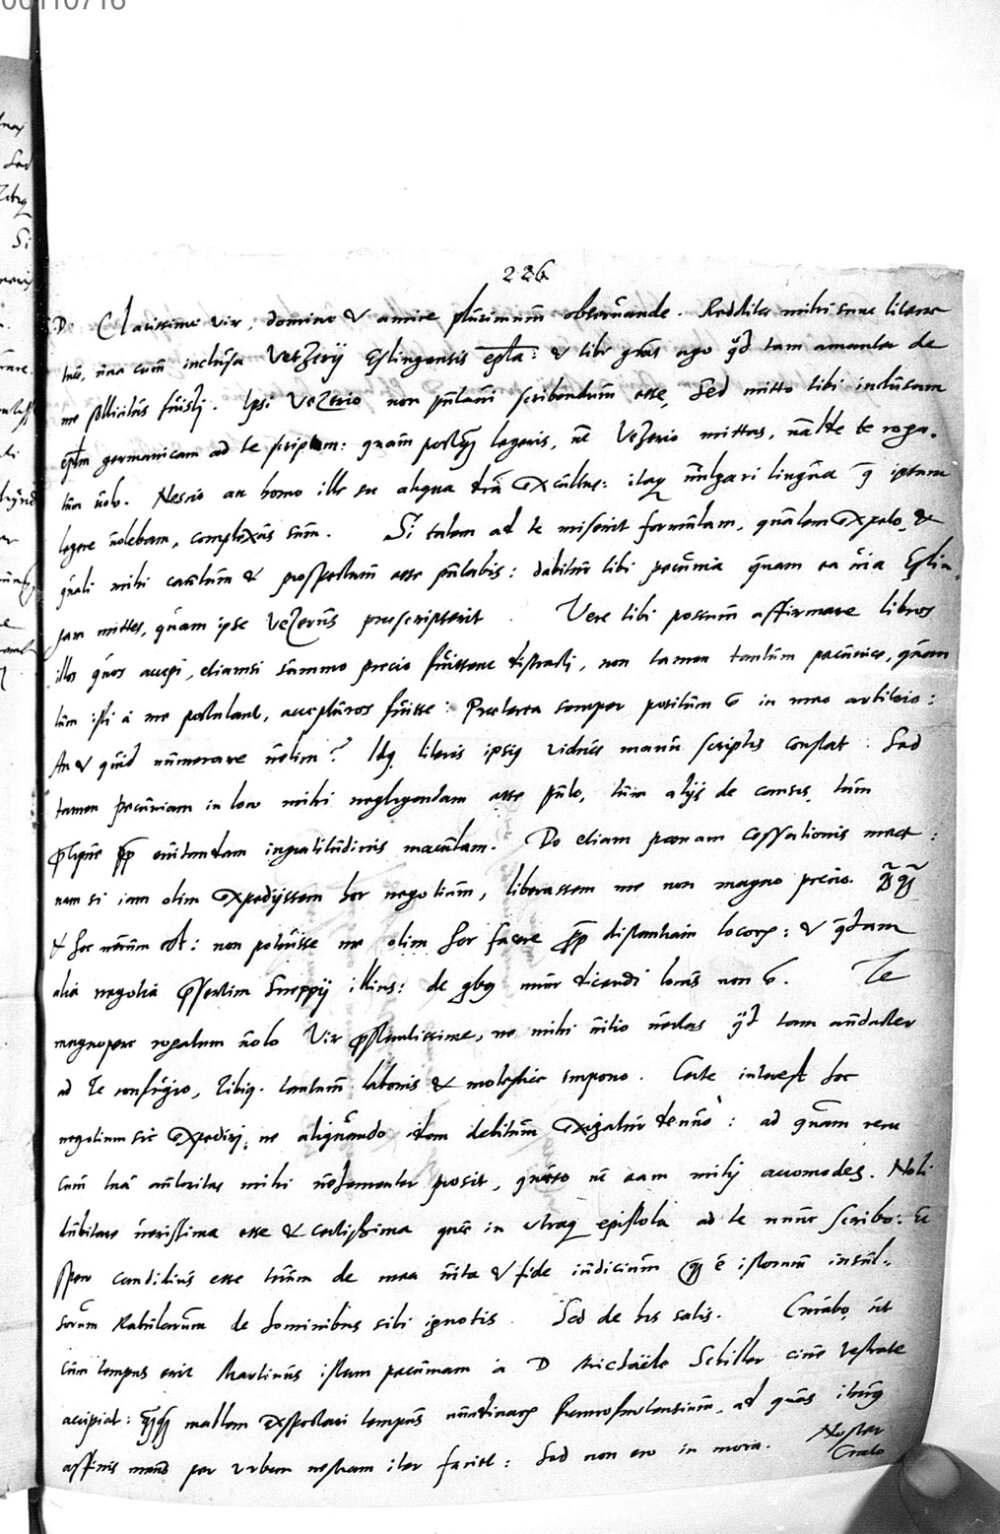 226
S. D. Clarissime vir, domine & amice plurimum observande. Redditae mihi sunt literae
tuae, una cum inclusa Vezerij Eslingensis epla: & tibi gras ago qd tam amanter de
me sollicitus fuisti. Ipsi Vezerio non putavi scribendum esse, Sed mitto tibi inclusam
eplam germanicam ad te scriptam: quam postq legeris, ut Vezerio mittas, valde te roga-
tum volo. Nescio an homo ille sit aliqua tra excultus: itaq vulgari lingua q ipsum
legere volebam, complexus sum. Si talem ad te miserit formulam, qualem expeto, &
quali mihi cautum & prospectum esse putabis: dabitur tibi pecunia quam ea via Eslin-
gam mittes, quam ipse Vezerus praescripserit. Vere tibi possum affirmare libros
illos quos accepi, etiamsi summo precio fuissent distracti, non tamen tantum pecuniae, quam
tum isti a me postulant, accepturos fuisse: Praeterea semper positum e in meo arbitrio:
An & quid numerare velim? Idq literis ipsis viduae manu scriptis constat. Sed
tamen pecuniam in loco mihi negligendam esse puto, tum alijs de causis, tum
propter evitandam ingratitudinis maculam. Do etiam poenam cessationis meae:
nam si iam olim expedijssem hoc negotium, liberassem me non magno precio. Quanquam
& hoc verum est: non potuisse me olim hoc facere propter distantiam locorum: & quaedam
alia negotia praesertim Sneppij illius: de quibus nunc dicendi locus non e. Te
magnopere rogatum volo Vir praestantissime, ne mihi vitio vertas qd tam audacter
ad te confugio, tibiq tantum laboris & molestiae impono. Certe interest hoc
negotium sic expediri, ne aliquando idem debitum exigatur denuo: ad quam rem
cum tua autoritas mihi vehementer prosit, quaeso ut eam mihi accomodes. Noli
dubitare verissima esse & certissima quae in utraq epistola ad te nunc scribo: &
spero candidius esse tuum de mea vita & fide iudicium quam e istorum insul-
sorum Rabularum de hominibus sibi ignotis. Sed de his satis. Curabo, ut
cum tempus erit Martinus istam pecuniam a D Michaele Schiller cive vestrate
accipiat: quanquam mallem expectari tempus nundinarum Francofurtensium, ad quas iturus
affinis meus per urbem vestram iter faciet: Sed non ero in mora. Noster
Crato